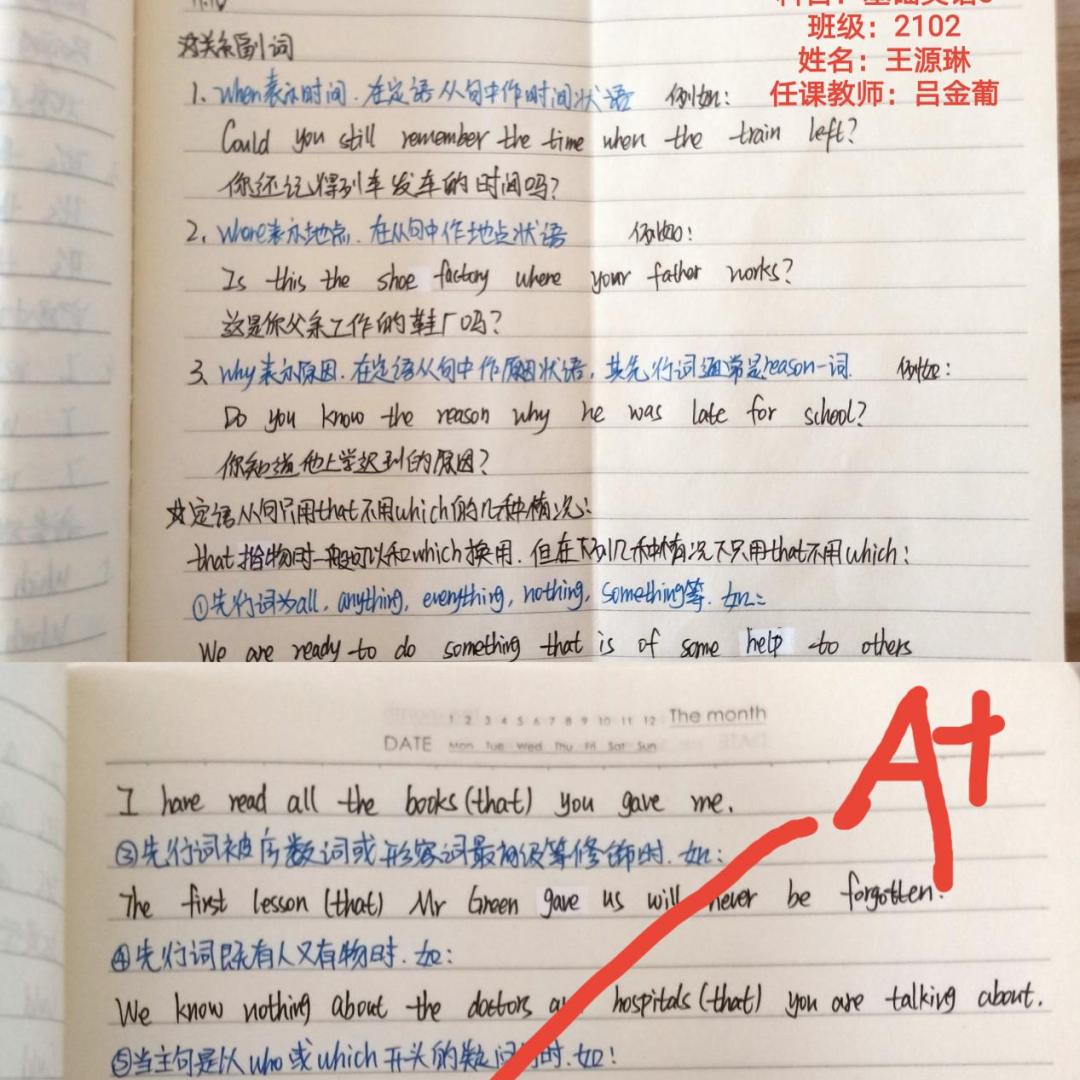 班级：2102
姓名：王源琳
任课教师：吕金葡
关系副词
1、when表示时间．在定语从句中作时间状语 例如：
Could you still remember the time when the train left?
你还记得列车发车的时间吗？
2、where表示地点．在从句中作地点状语 例如：
Is this the shoe factory where your father works?
这是你父亲工作的鞋厂吗？
3、why表示原因．在定语从句中作原因状语，其先行词通常是reason一词． 例如：
Do you know the reason why he was late for school?
你知道他上学迟到的原因？
☆定语从句只用that不用which的几种情况：
that指物时一般可以和which换用．但在下列几种情况下只用that不用which：
①先行词为all, anything, everything, nothing, something等．如：
We are ready to do something that is of some help to others
1 2 3 4 5 6 7 8 9 10 11 12 The month
DATE Mon Tue Wed Thu Fri Sat Sun
A+
I have read all the books (that) you gave me.
③先行词被序数词或形容词最高级等修饰时．如：
The first lesson (that) Mr Green gave us will never be forgotten.
④先行词既有人又有物时．如：
We know nothing about the doctors hospitals (that) you are talking about.
⑤当主句是以who或which开头的疑问 时．如：